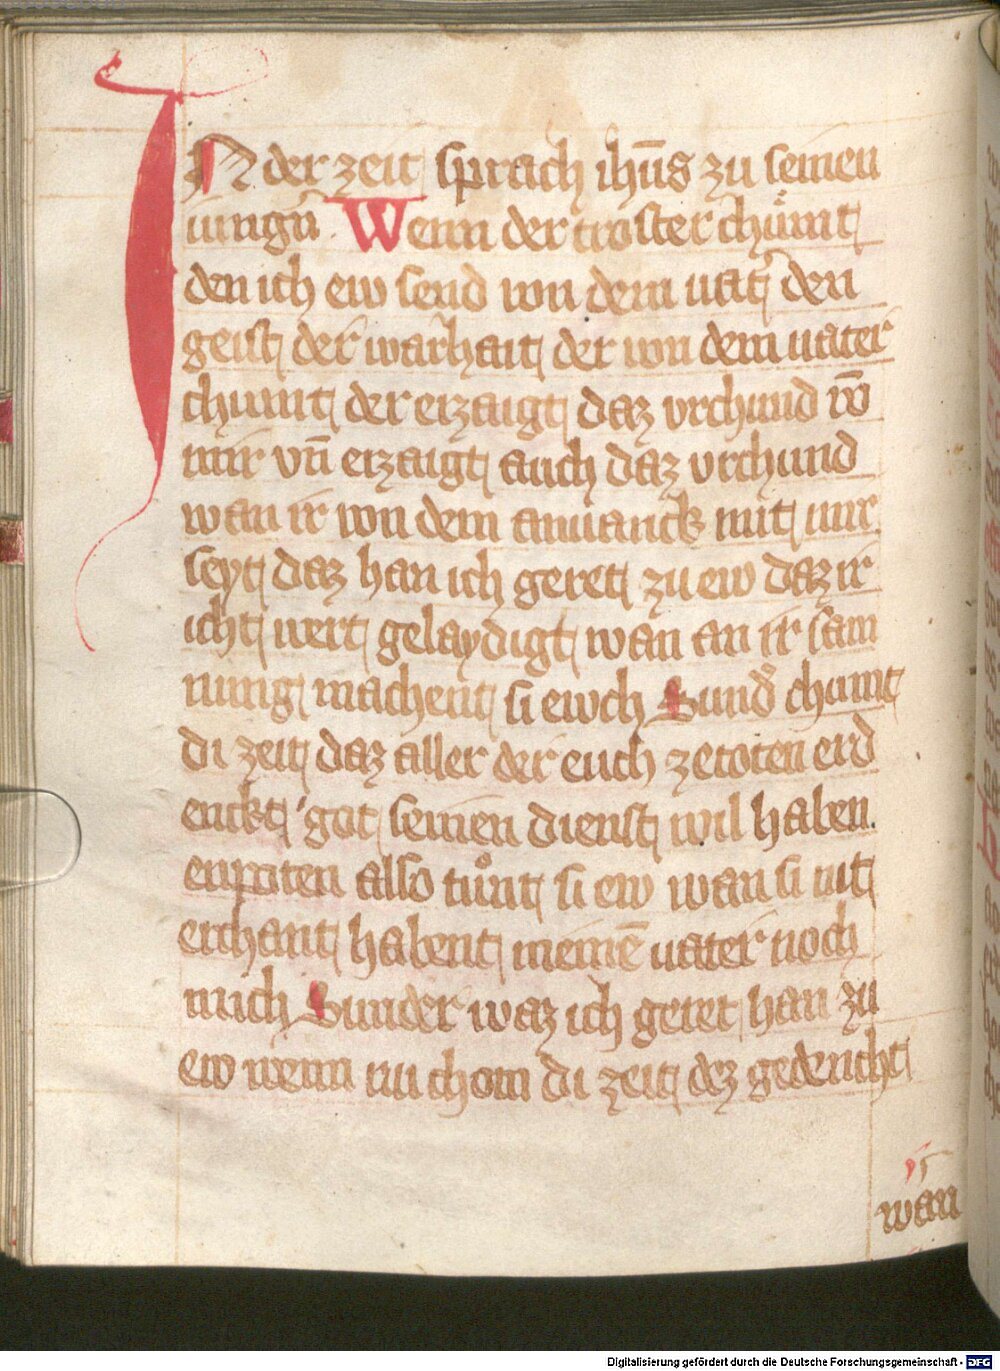 IN der zeit sprach ihūs zu seinen
iungn̄ Wenn der troster chůmt
den ich ew send von dem vat̓ den
geist der warhait der von dem vater
chumt der erzaigt daz vrchund vō
mir vn̄ erzaigt auch daz vrchund
wan ir von dem anuanck mit mir
seyt daz han ich geret zu ew daz ir
icht wert gelaydigt wan an ir sam
nung machent si ewch Sund̓ chumt
di zeit daz aller der euch zetoten erd
enckt got seinen dienst wil haben
enpoten also tůnt si ew wan si nit
erchant habent meinē vater noch
mich Sunder waz ich geret han zu
ew wenn nu chom di zeit dez gedencht
wan
Digitalisierung gefördert durch die Deutsche Forschungsgemeinschaft - DFG